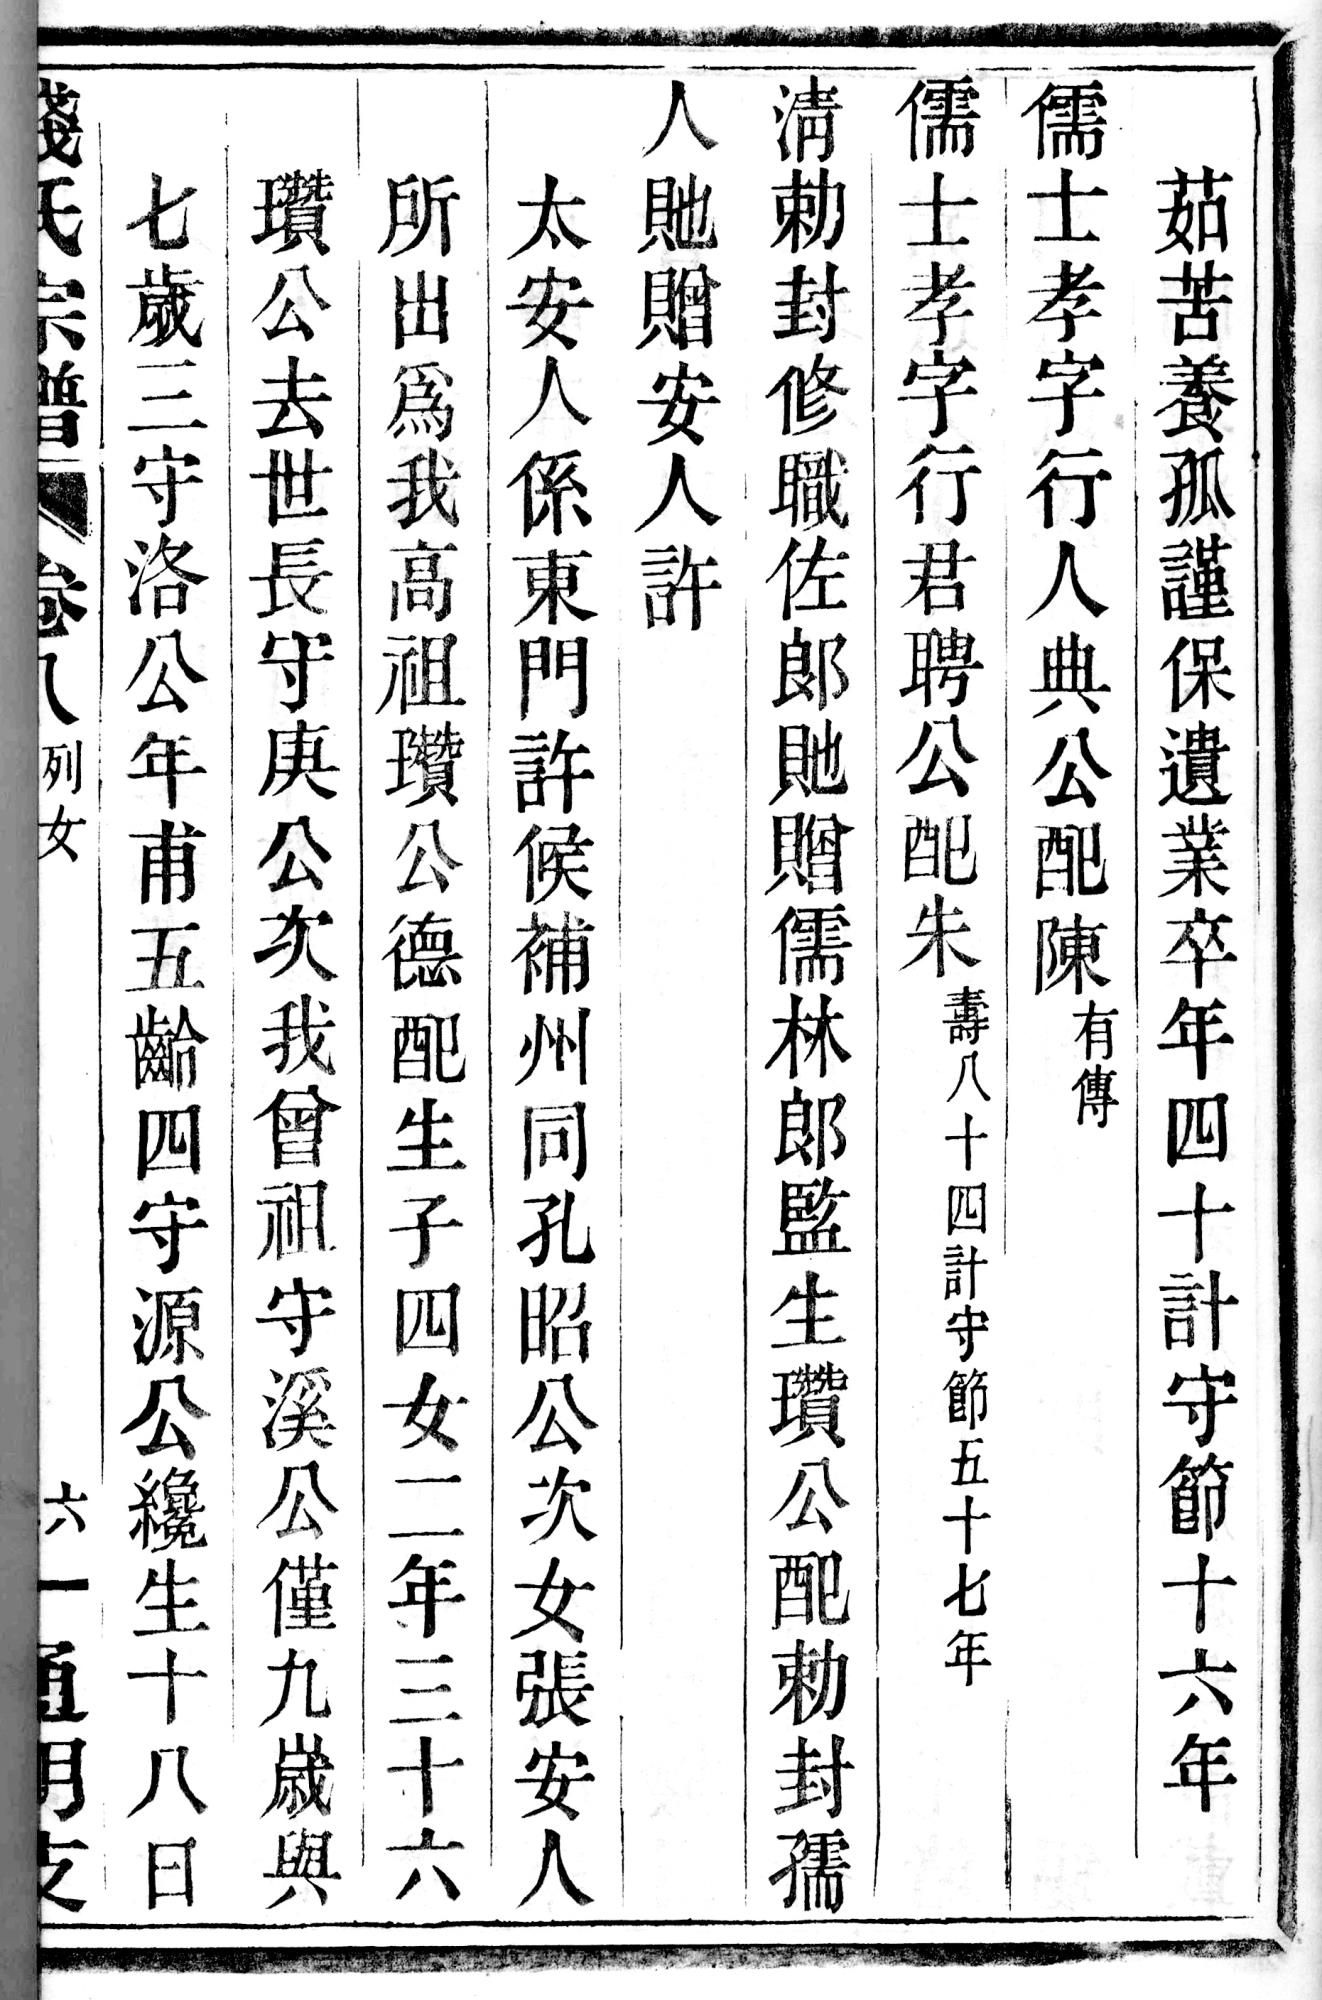 茹苦養孤謹保遺業卒年四十計守節十六年
儒士孝字行人典公配陳有傳
儒士孝字行君聘公配朱壽八十四計守節五十七年
清勅封修職佐郎貤贈儒林郎監生瓚公配勅封孺
人貤贈安人許
太安人係東門許候補州同孔昭公次女張安人
所出為我高祖瓚公德配生子四女二年三十六
瓚公去世長守庚公次我曾祖守溪公僅九歲與
七歲三守洛公年甫五齡四守源公纔生十八日
錢氏宗譜 卷八 列女 六一 通明支